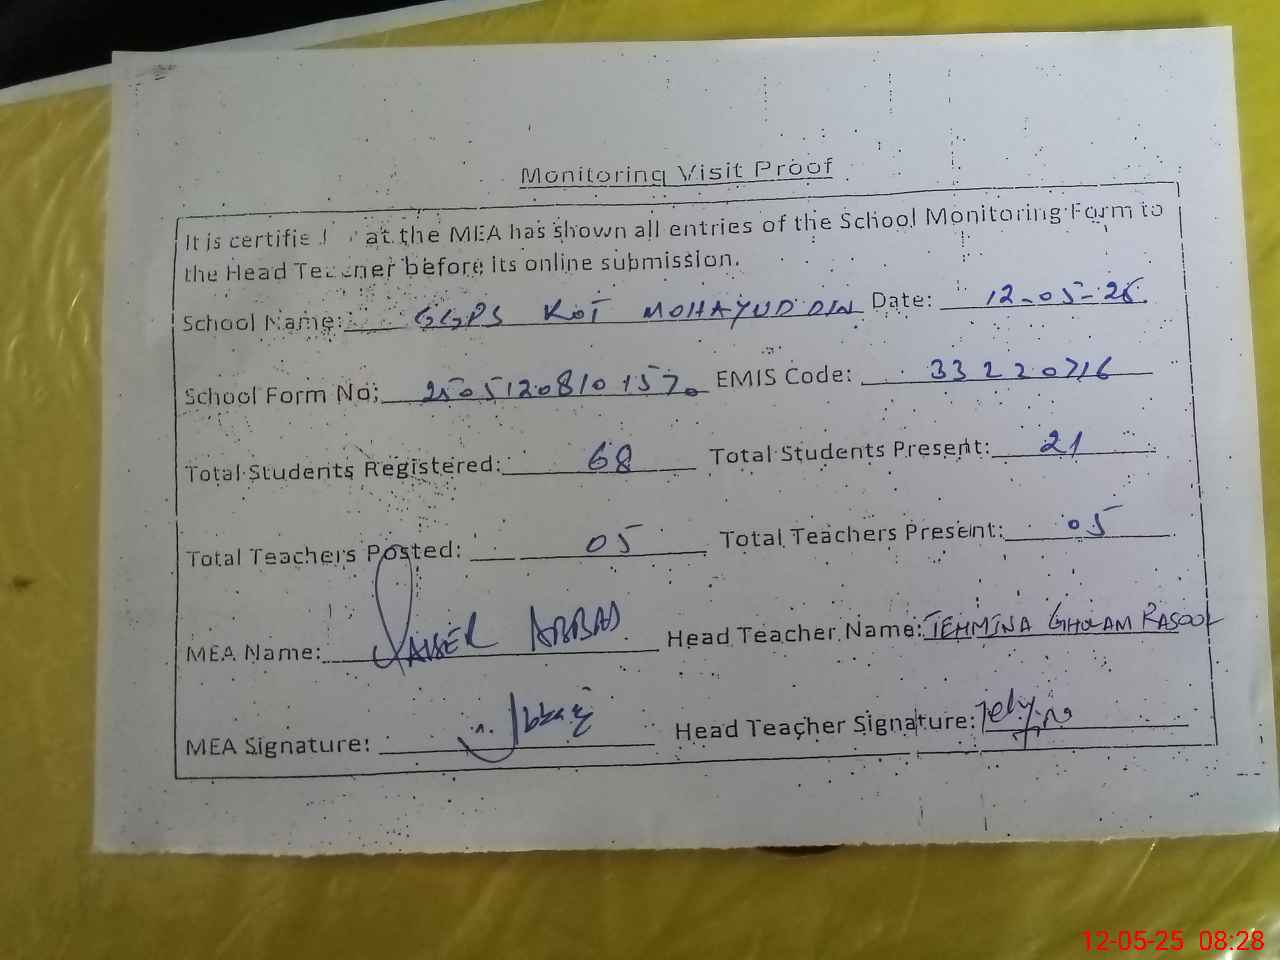 Monitoring Visit Proof
It is certifie at the MEA has shown all entries of the School Monitoring Form to
the Head Teacher before its online submission.
School Name: GGPS KOT MOHAYUDDIN Date: 12-05-25
School Form No: EMIS Code: 33220716
Total Students Registered: 68 Total Students Present: 21
Total Teachers Posted: 05 Total Teachers Present: 05
MEA Name: QAISER ABBAS Head Teacher Name: TEHMINA GHULAM RASOOL
MEA Signature: Head Teacher Signature:
12-05-25 08:28